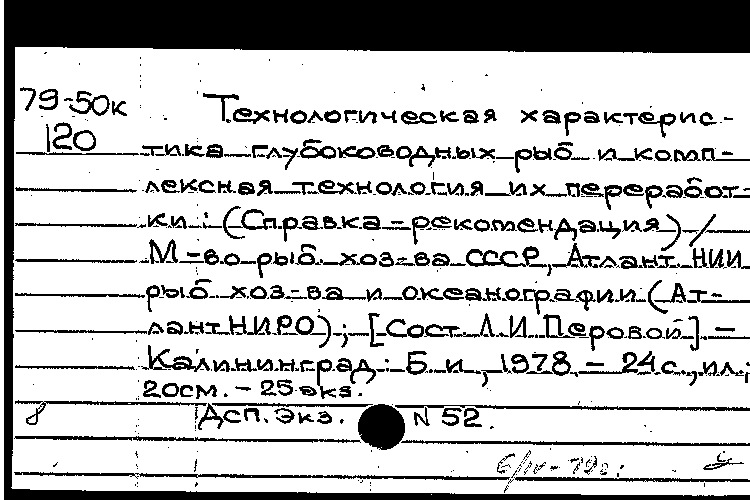 79-50к
120
Технологическая характерис-
тика глубоководных рыб и комп-
лексная технология их переработ-
ки: (Справка-рекомендация) /
М-во рыб. хоз-ва СССР, Атлант. НИИ
рыб хоз-ва и океанографии (Ат-
лантНИРО); [Сост. Л.И. Перовой]. -
Калининград: Б.и., 1978. - 24 с., ил.;
20см. - 25 экз.
8 ДСП. Экз. N 52.
6/IV-79г.